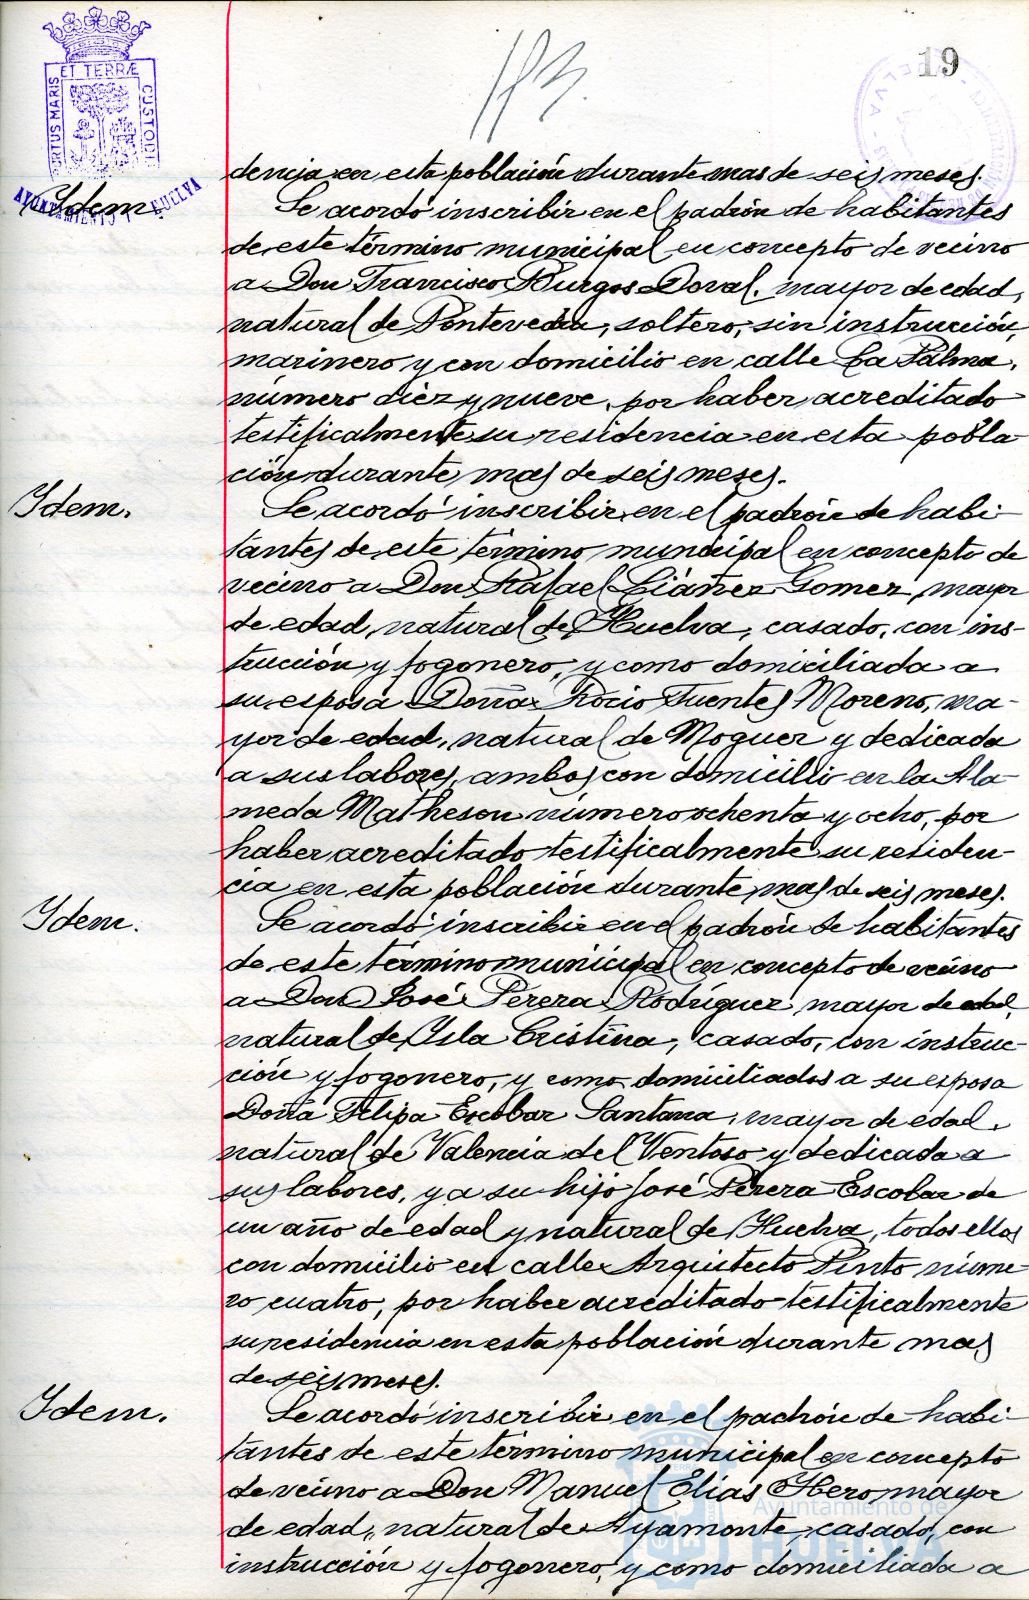 193.
19
ET TERRÆ
PORTUS MARIS
CUSTODI
AYUNTAMIENTO HUELVA
dencia en esta población durante mas de seis meses.
Idem.
Se acordó inscribir en el padrón de habitantes
de este término municipal en concepto de vecino
a Don Francisco Burgos Doval, mayor de edad,
natural de Pontevedra, soltero, sin instrucción,
marinero y con domicilio en calle La Palma,
número diez y nueve, por haber acreditado
testificalmente su residencia en esta pobla-
ción durante mas de seis meses.
Idem.
Se acordó inscribir en el padrón de habi-
tantes de este término municipal en concepto de
vecino a Don Rafael Liáñez Gomez, mayor
de edad, natural de Huelva, casado, con ins-
trucción y fogonero, y como domiciliada a
su esposa Doña Rocio Fuentes Moreno, ma-
yor de edad, natural de Moguer y dedicada
a sus labores, ambos con domicilio en la Ala-
meda Matheson número ochenta y ocho, por
haber acreditado testificalmente su residen-
cia en esta población durante mas de seis meses.
Idem.
Se acordó inscribir en el padrón de habitantes
de este término municipal en concepto de vecino
a Don José Perera Rodríguez, mayor de edad,
natural de Isla Cristina, casado, con instruc-
ción y fogonero, y como domiciliados a su esposa
Doña Felipa Escobar Santana, mayor de edad,
natural de Valencia del Ventoso y dedicada a
sus labores, y a su hijo José Perera Escobar de
un año de edad y natural de Huelva, todos ellos
con domicilio en calle Arquitecto Pinto núme-
ro cuatro, por haber acreditado testificalmente
su residencia en esta población durante mas
de seis meses.
Idem.
Se acordó inscribir en el padrón de habi-
tantes de este término municipal en concepto
de vecino a Don Manuel Elías Hero, mayor
de edad, natural de Ayamonte, casado, con
instrucción y fogonero, y como domiciliada a
Ayuntamiento de
HUELVA